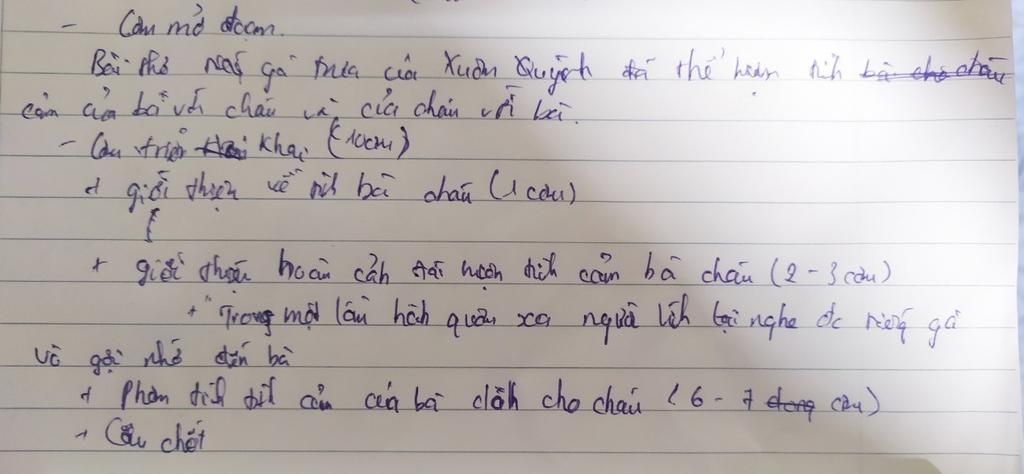 - Câu mở đoạn.
Bài thơ tiếng gà trưa của Xuân Quỳnh đã thể hiện tình bà cho cháu
cảm của bà với cháu và của cháu với bà.
- Câu triển khai (10 câu)
+ giới thiệu về tình bà cháu (1 câu)
+ giới thiệu hoàn cảnh tái hiện tình cảm bà cháu (2 - 3 câu)
+ "Trong một lần hành quân xa người lính lại nghe đc tiếng gà
và gợi nhớ đến bà
+ Phân tích tình cảm của bà dành cho cháu (6 - 7 dong câu)
+ Câu chốt